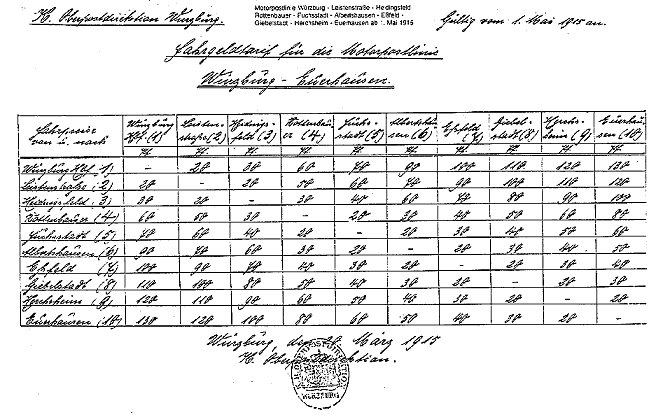 K. Oberpostdirektion Würzburg.
Motorpostlinie Würzburg - Leistenstraße - Heidingsfeld
Rottenbauer - Fuchsstadt - Albertshausen - Eßfeld -
Giebelstadt - Herchsheim - Euerhausen ab 1. Mai 1915
Gültig vom 1. Mai 1915 an.
Fahrgeldtarif für die Motorpostlinie
Würzburg - Euerhausen.
Fahrpreise von u. nach Würzburg Hbf. (1) Leisten-straße (2) Heidings-feld (3) Rottenbau-er (4) Fuchs-stadt (5) Albertshau-sen (6) Eßfeld (7) Giebel-stadt (8) Herchs-heim (9) Euerhau-sen (10)
Würzburg Hbf. 1) - 20 30 60 70 90 100 110 120 130
Leistenstraße (2) 20 - 20 50 60 70 90 100 110 120
Heidingsfeld (3) 30 20 - 30 40 60 70 80 90 100
Rottenbauer (4) 60 50 30 - 20 30 40 50 60 80
Fuchsstadt (5) 70 60 40 20 - 20 30 40 50 60
Albertshausen (6) 90 70 60 30 20 - 20 30 40 50
Eßfeld (7) 100 90 70 40 30 20 - 20 30 40
Giebelstadt (8) 110 100 80 50 40 30 20 - 20 30
Herchsheim (9) 120 110 90 60 50 40 30 20 - 20
Euerhausen (10) 130 120 100 80 60 50 40 30 20 -
Würzburg, den 20. März 1915
K. Oberpostdirektion.
WÜRZBURG